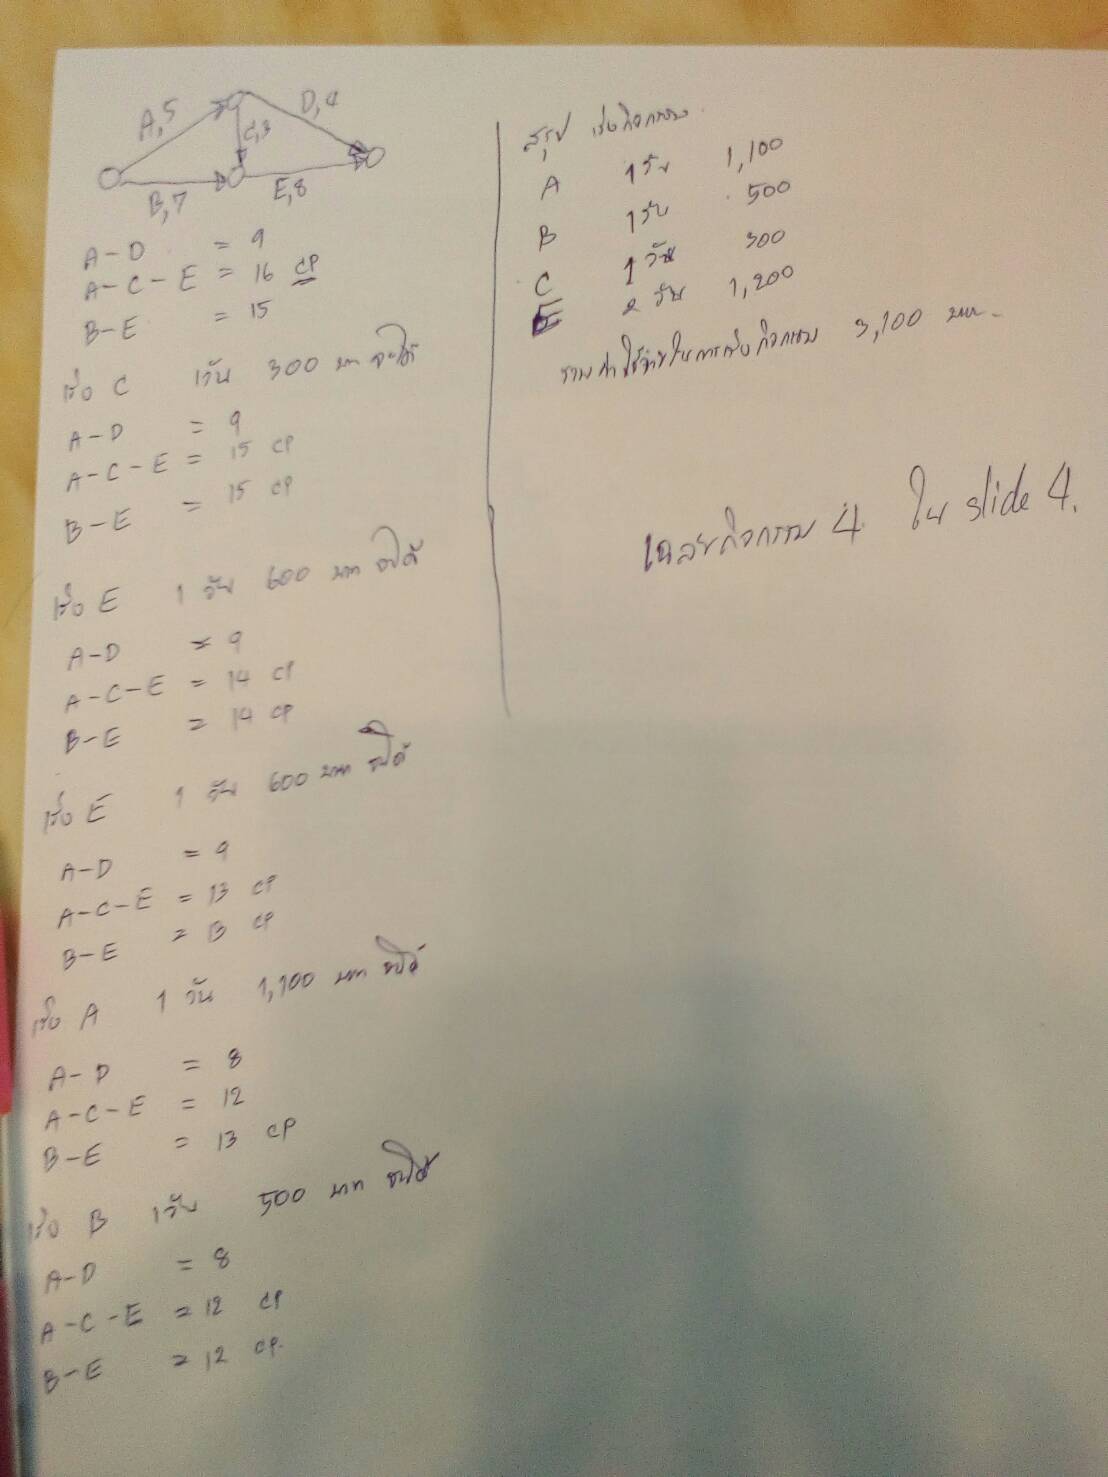 A,5
D,4
C,3
B,7
E,8
A-D = 9
A-C-E = 16 CP
B-E = 15
เร่ง C 1วัน 300 บาท จะได้
A-D = 9
A-C-E = 15 CP
B-E = 15 CP
เร่ง E 1 วัน 600 บาท จะได้
A-D = 9
A-C-E = 14 CP
B-E = 14 CP
เร่ง E 1 วัน 600 บาท จะได้
A-D = 9
A-C-E = 13 CP
B-E = 13 CP
เร่ง A 1 วัน 1,100 บาท จะได้
A-D = 8
A-C-E = 12
B-E = 13 CP
เร่ง B 1วัน 500 บาท จะได้
A-D = 8
A-C-E = 12 CP
B-E = 12 CP.
สรุป เร่งกิจกรรม
A 1วัน 1,100
B 1วัน 500
C 1 วัน 300
E 2 วัน 1,200
รวมค่าใช้จ่ายในการเร่งกิจกรรม 3,100 บาท.
เฉลยกิจกรรม 4 ใน slide 4.